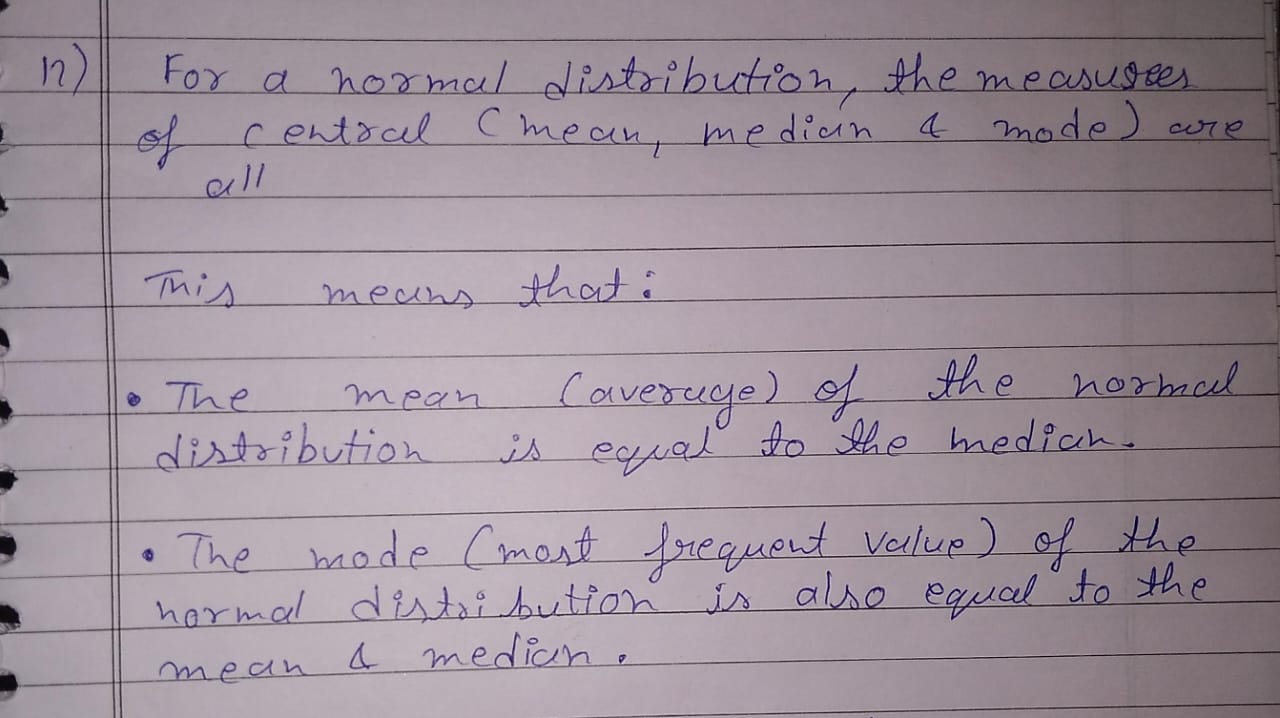 n) For a normal distribution, the measurees
of central (mean, median & mode) are
all
This means that:
• The mean (average) of the normal
distribution is equal to the median.
• The mode (most frequent value) of the
normal distribution is also equal to the
mean & median.